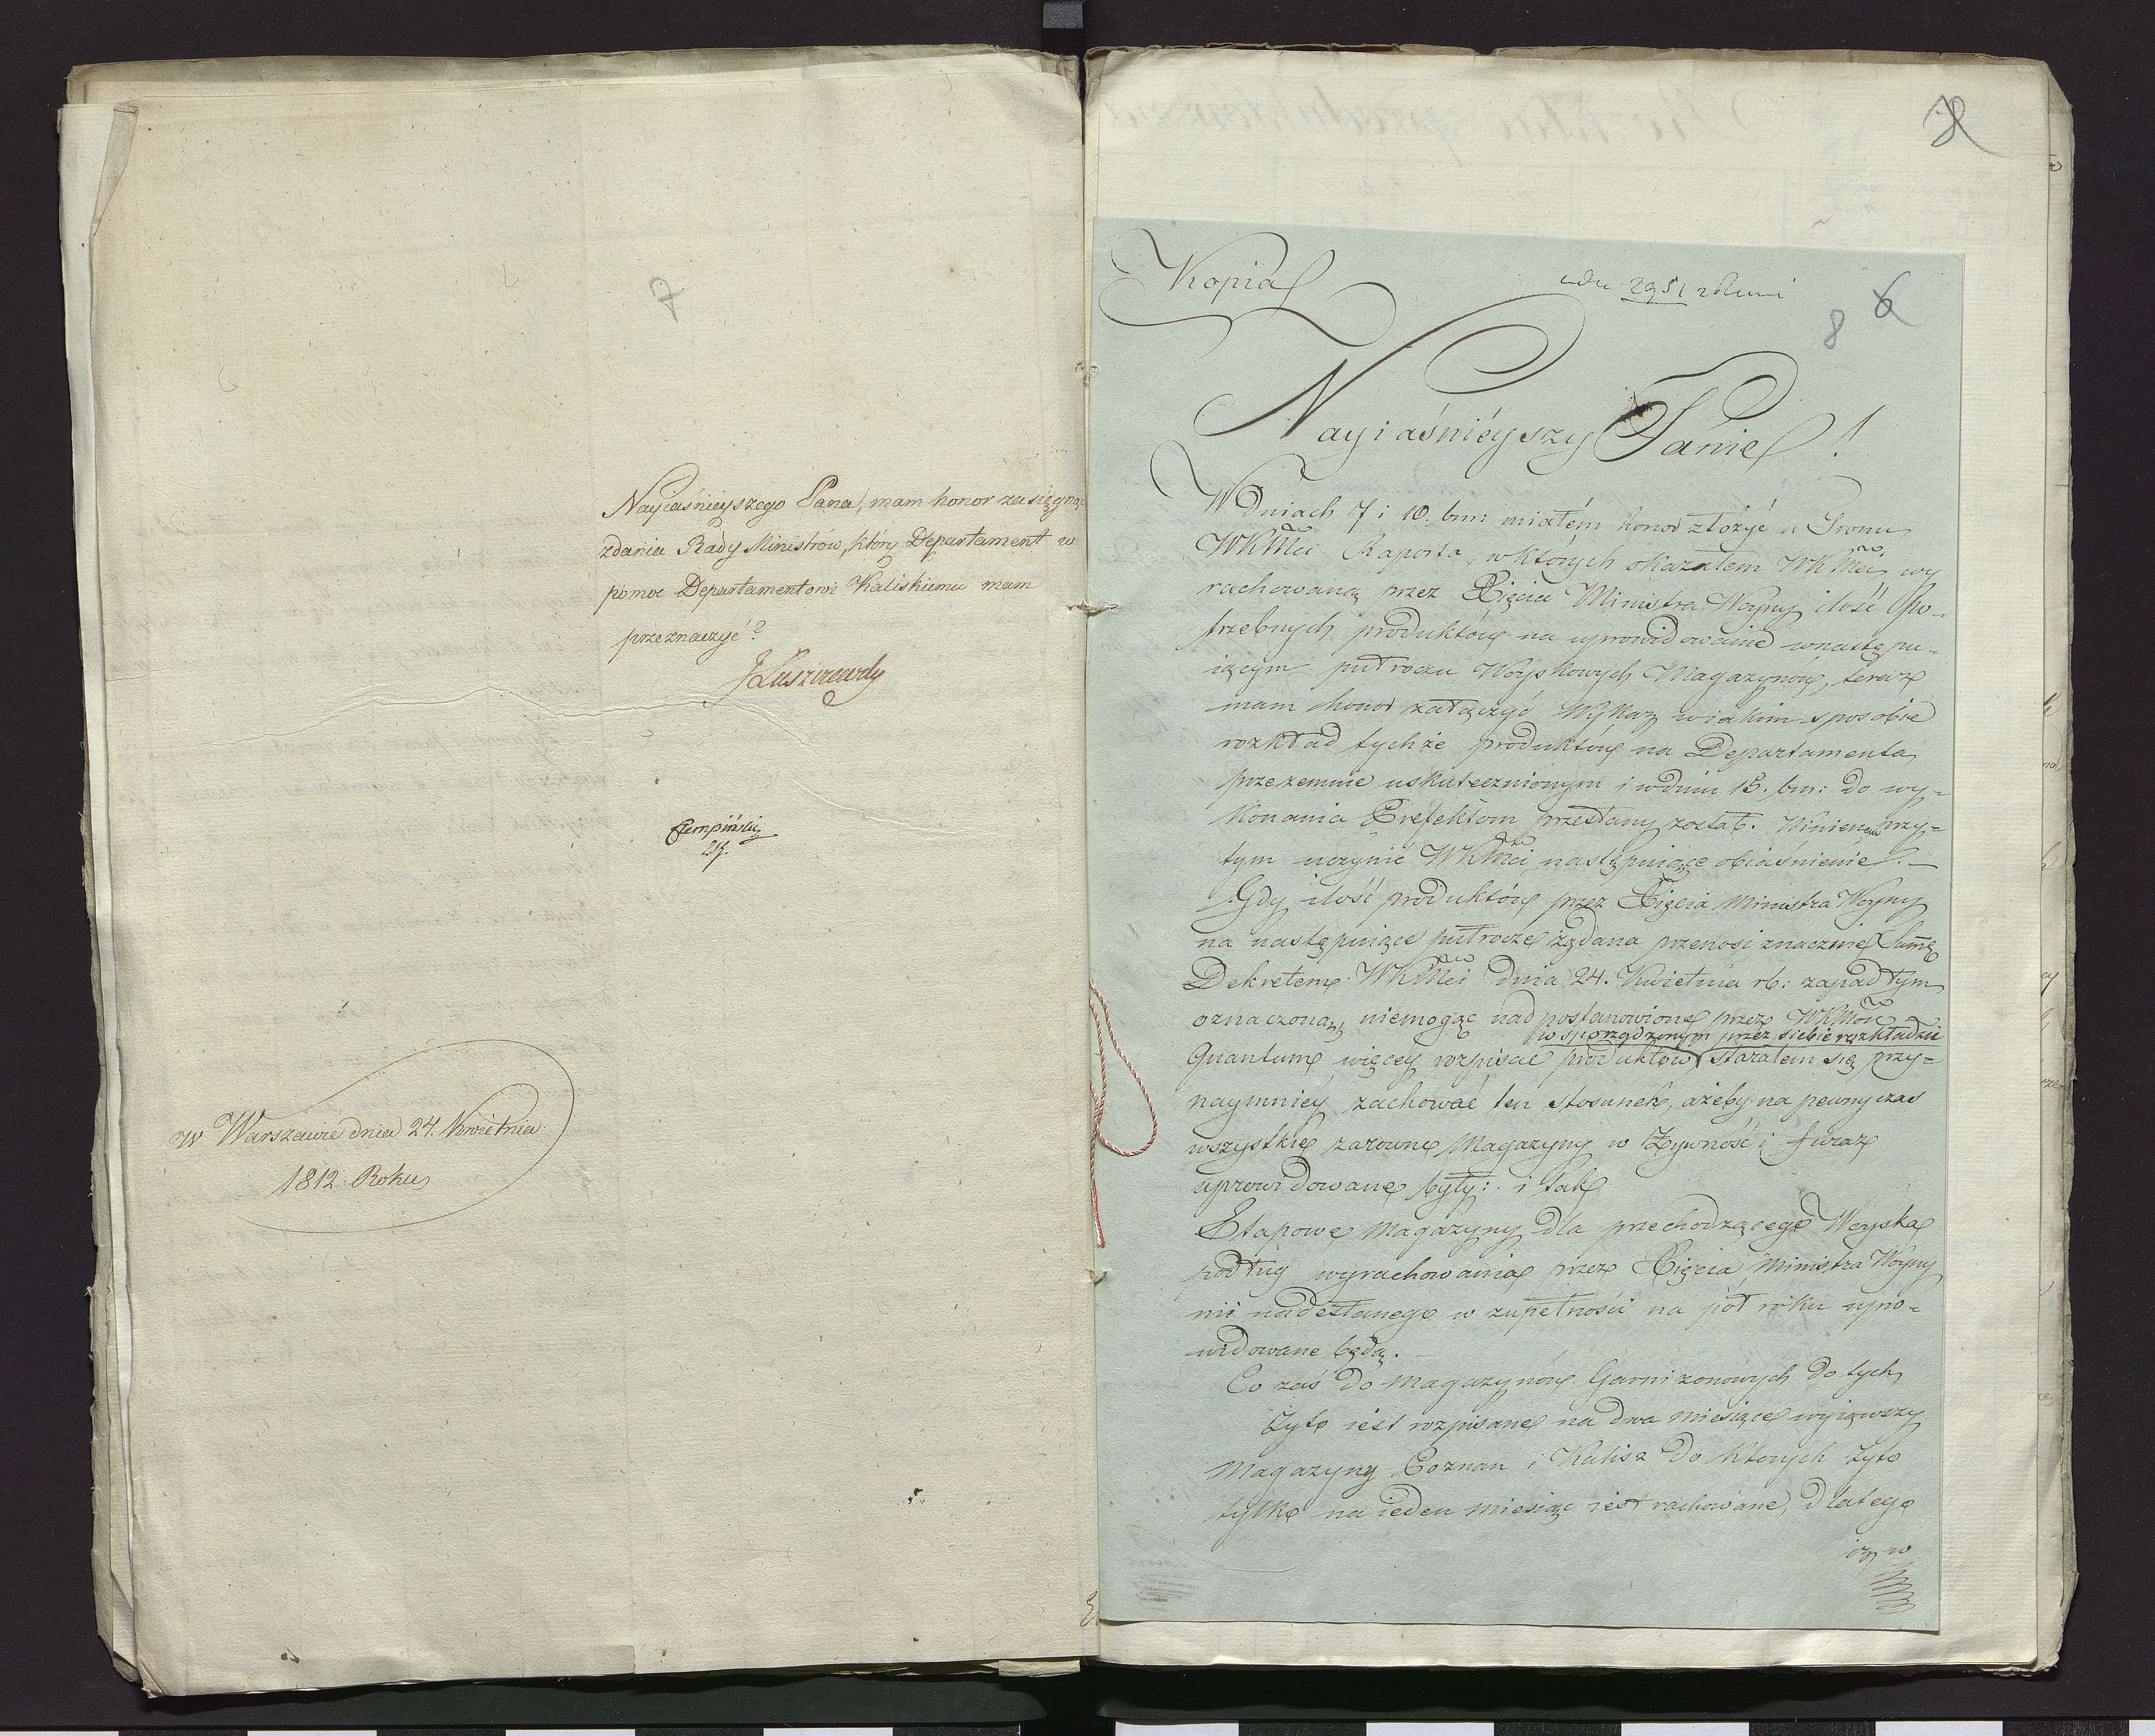 7
Nayiaśnieyszego Pana, mam honor zasięgnąć
zdania Rady Ministrów, który Departament w
pomoc Departamentowi Kaliskiemu mam
przeznaczyć?
JŁuszczewsky
W Warszawie dnia 24. Kwietnia
1812 Roku
Kopia
2951
8 6
Nayiaśnieyszy Panie!
W dniach 7 i 10. bm: miałem honor złożyć u Tronu
WKMci Raporta, w których okazałem WKMci wy
rachowaną przez Xięcia Ministra Woyny ilość po-
trzebnych produktów na uprowidowanie w nastęпu-
iącym pułroczu Woyskowych Magazynów, teraz
mam honor załączyć Wykaz w iakim sposobie
rozkład tychże produktów na Departamenta
przezemnie uskutecznionym i w dniu 15. bm: do wy-
konania Prefektom przesłany został. Winienem przy-
tym uczynić WKMci następuiące obiaśnienie.-
Gdy ilość produktów przez Xięcia Ministra Woyny
na następuiące pułrocze żądana przenosi znacznie Summę
Dekretem WKMci dnia 24. Kwietnia rb: zapadłym
oznaczoną, niemogąc nad postanowione przez WKMość
w sporządzonym przez siebie rozkładzie
Quantum więcey rozpisać produktów starałem się przy-
naymniey zachować ten stosunek, ażeby na pewny czas
wszystkie zarówne Magazyny w Żywność i furaż
uprowidowane były: i tak
Etapowe Magazyny dla przechodzącego Woyska
podług wyrachowania przez Xięcia Ministra Woyny
mi nadesłanego w zupełności na pół roku upro-
widowane będą.
Co zaś do Magazynów Garnizonowych do tych
żyto iest rozpisane na dwa miesiące wyiąwszy
Magazyny Poznan i Kalisz do których żyto
tylko na ieden miesiąc iest rachowane, dlatego
iż w